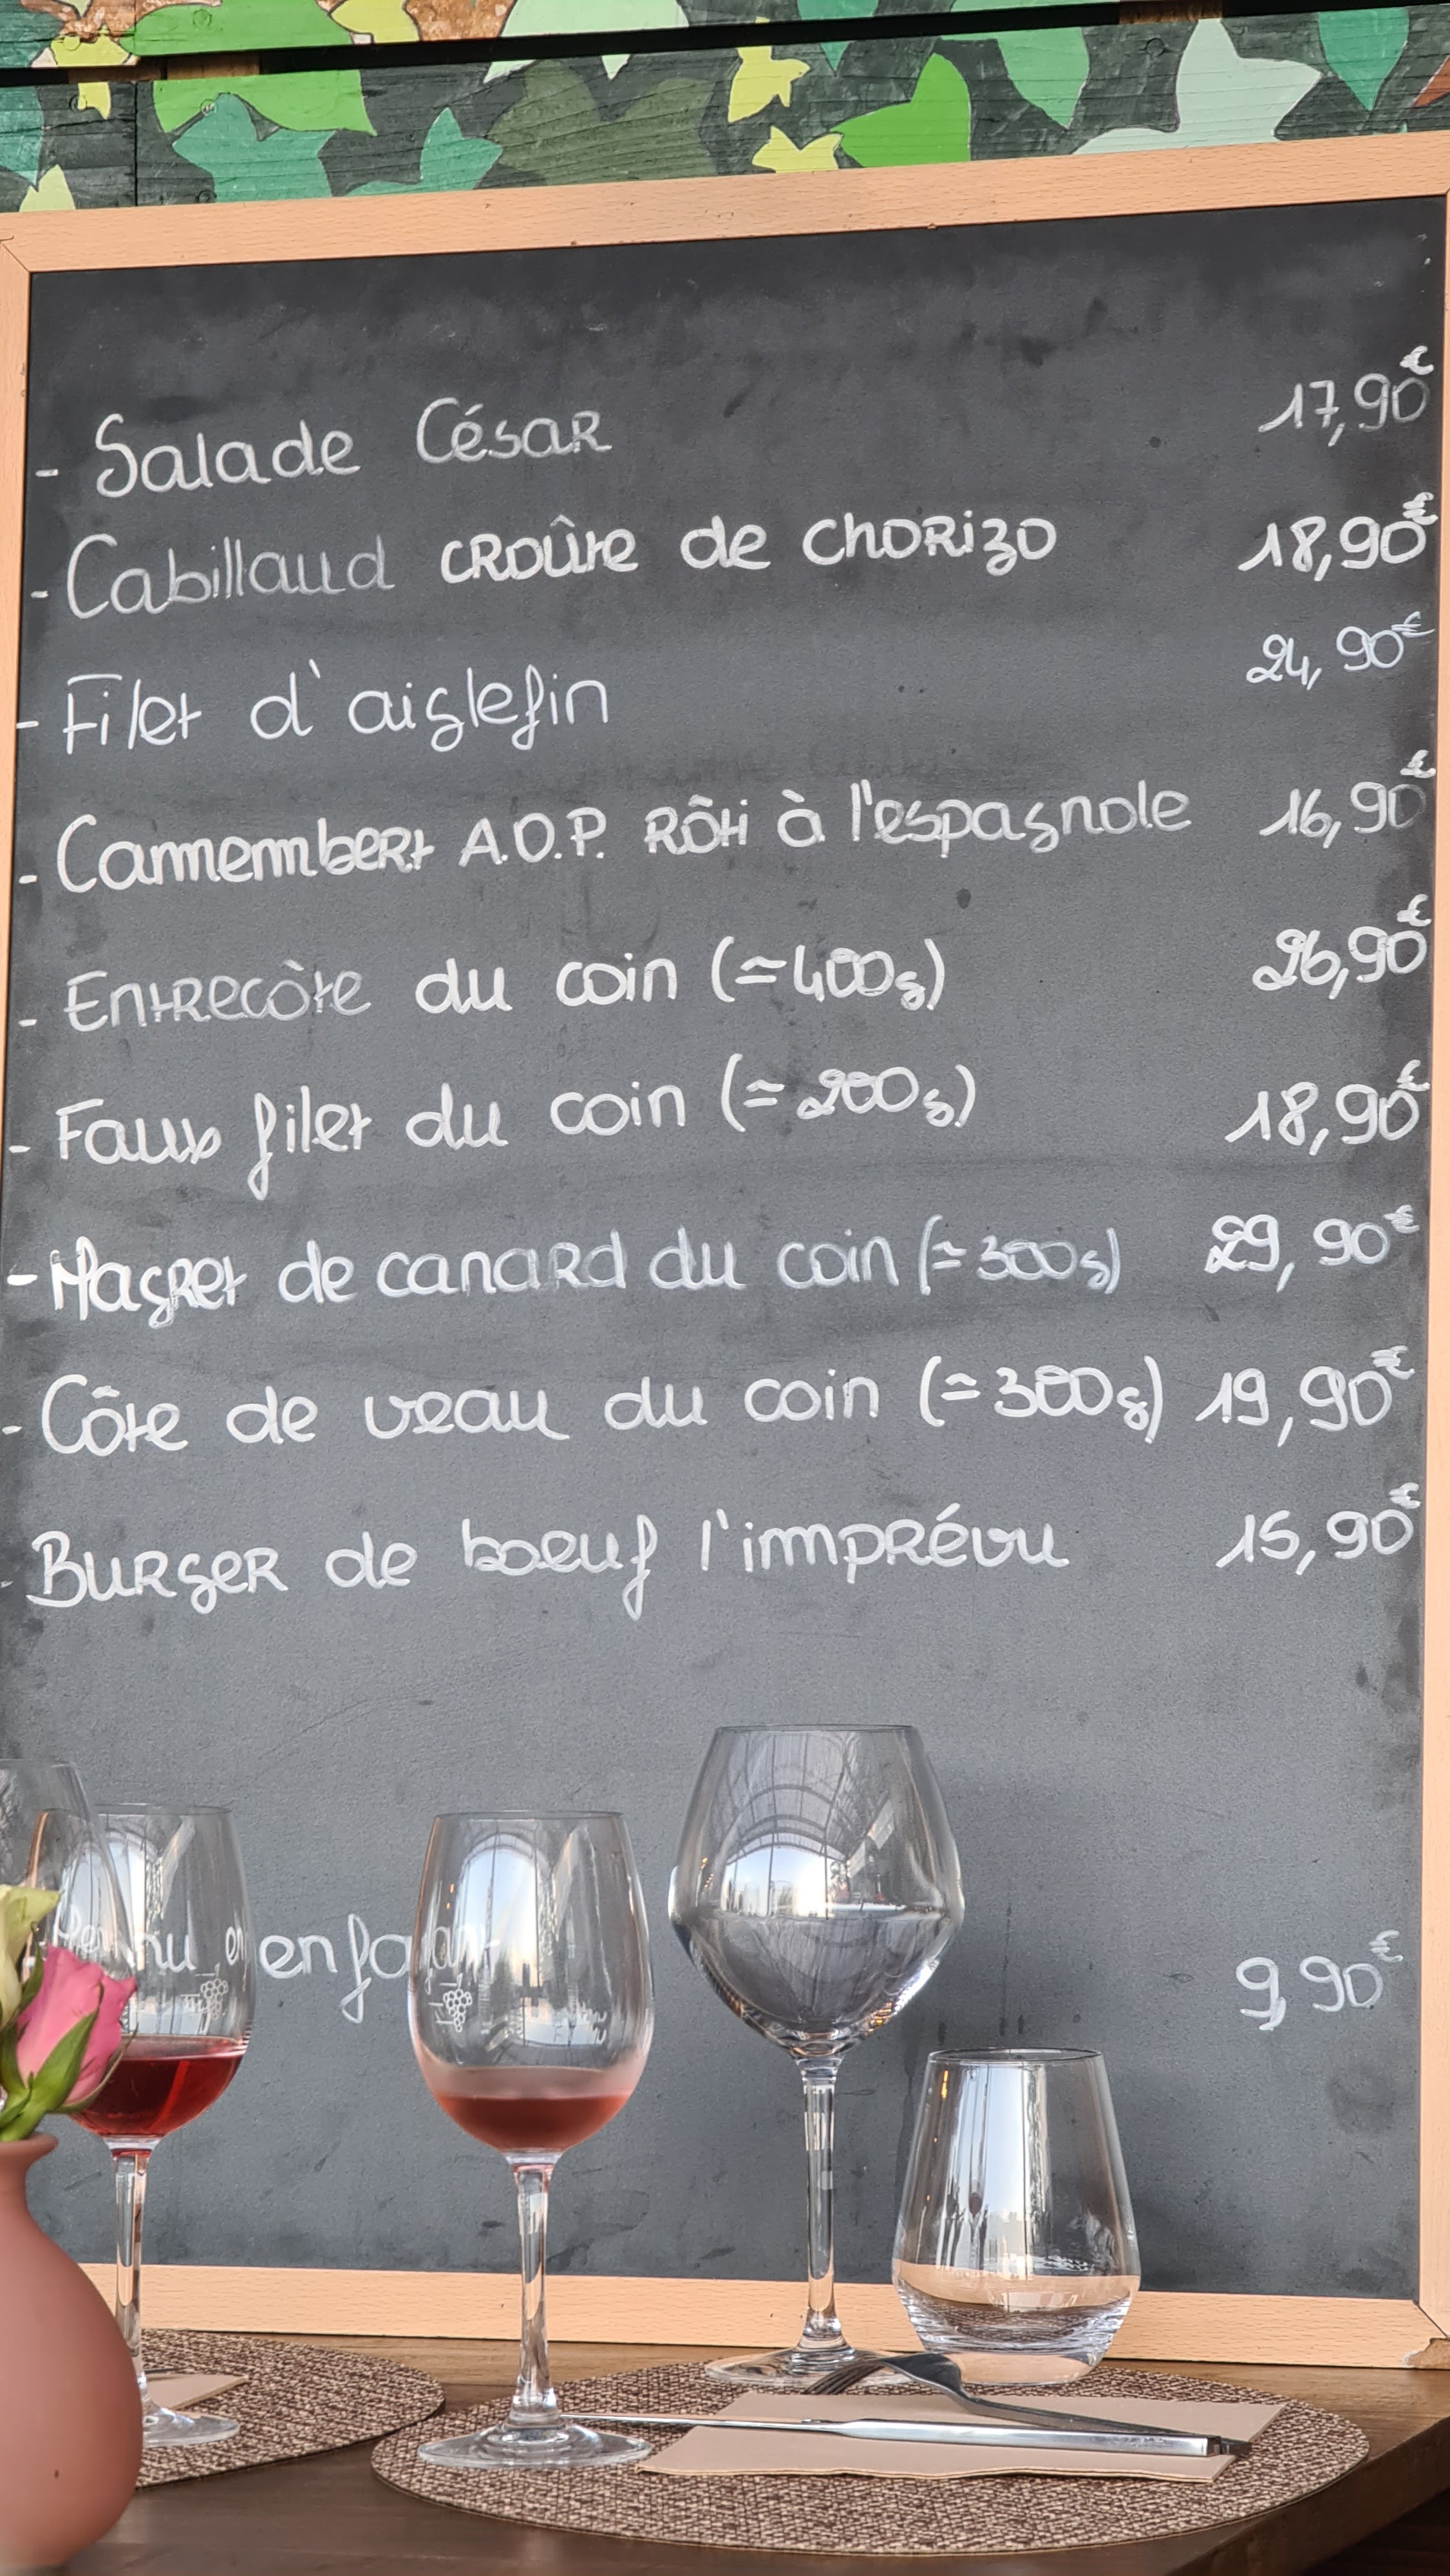 - Salade César 17,90€
- Cabillaud croûte de chorizo 18,90€
- Filet d'aiglefin 24,90€
- Camembert A.O.P. rôti à l'espagnole 16,90€
- Entrecôte du coin (≈400g) 26,90€
- Faux filet du coin (≈200g) 18,90€
- Magret de canard du coin (≈300g) 29,90€
- Côte de veau du coin (≈300g) 19,90€
- Burger de boeuf l'imprévu 15,90€
Menu enfant 9,90€